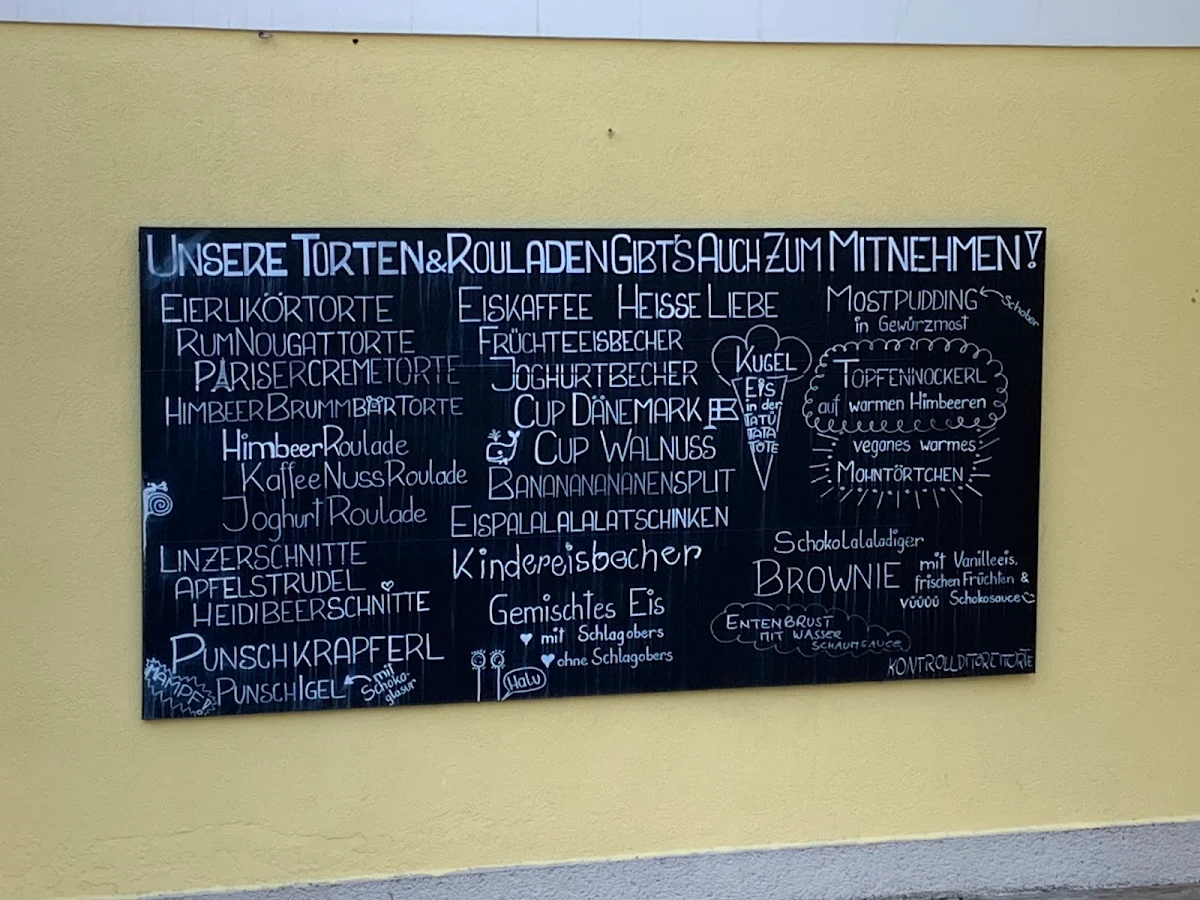 UNSERE TORTEN & ROULADEN GIBT'S AUCH ZUM MITNEHMEN!
EIERLIKÖRTORTE
RUMNOUGATTORTE
PARISERCREMETORTE
HIMBEERBRUMMBÄRTORTE
HimbeerRoulade
KaffeeNussRoulade
Joghurt Roulade
LINZERSCHNITTE
APFELSTRUDEL
HEIDIBEERSCHNITTE
PUNSCHKRAPFERL
MAMPF!
PUNSCHIGEL
mit
Schoko-
glasur
EISKAFFEE HEISSE LIEBE
FRÜCHTEEISBECHER
JOGHURTBECHER
CUP DÄNEMARK
CUP WALNUSS
BANANANANANENSPLIT
EISPALALALALATSCHINKEN
Kindereisbecher
Gemischtes Eis
mit Schlagobers
ohne Schlagobers
Halu
KUGEL
EIS
in der
TATÜ
TATA
TÜTE
MOSTPUDDING
Schober
in Gewürzmost
TOPFENNOCKERL
auf warmen Himbeeren
veganes warmes
MOHNTÖRTCHEN
Schokolalaladiger
BROWNIE
mit Vanilleeis,
frischen Früchten &
vüüüü Schokosauce
ENTENBRUST
MIT WASSER
SCHAUMSAUCE
KONTROLLDITORETTORTE